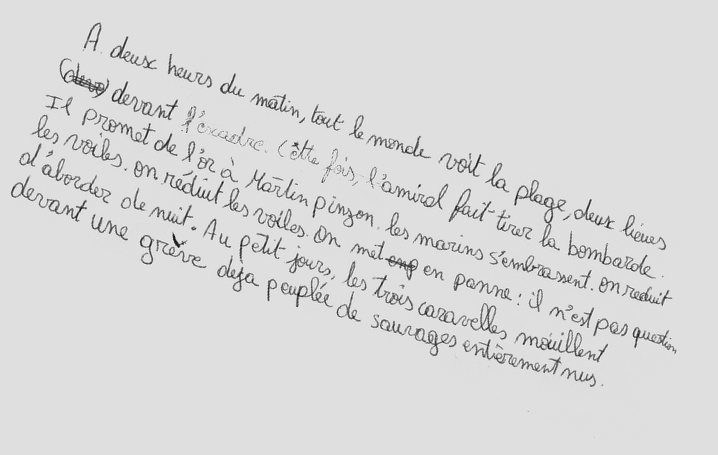 A deux heurs du matin, tout le monde voit la plage, deux lieues
devant l'escadre. Cette fois, l'amiral fait tirer la bombarde.
Il promet de l'or à Martin pinson. les marins s'embrassent. on reduit
les voiles. on réduit les voiles. On met en panne : il n'est pas question
d'aborder de nuit. Au petit jours, les trois caravelles mouillent
devant une grève deja peuplée de sauvages entièrement nus.